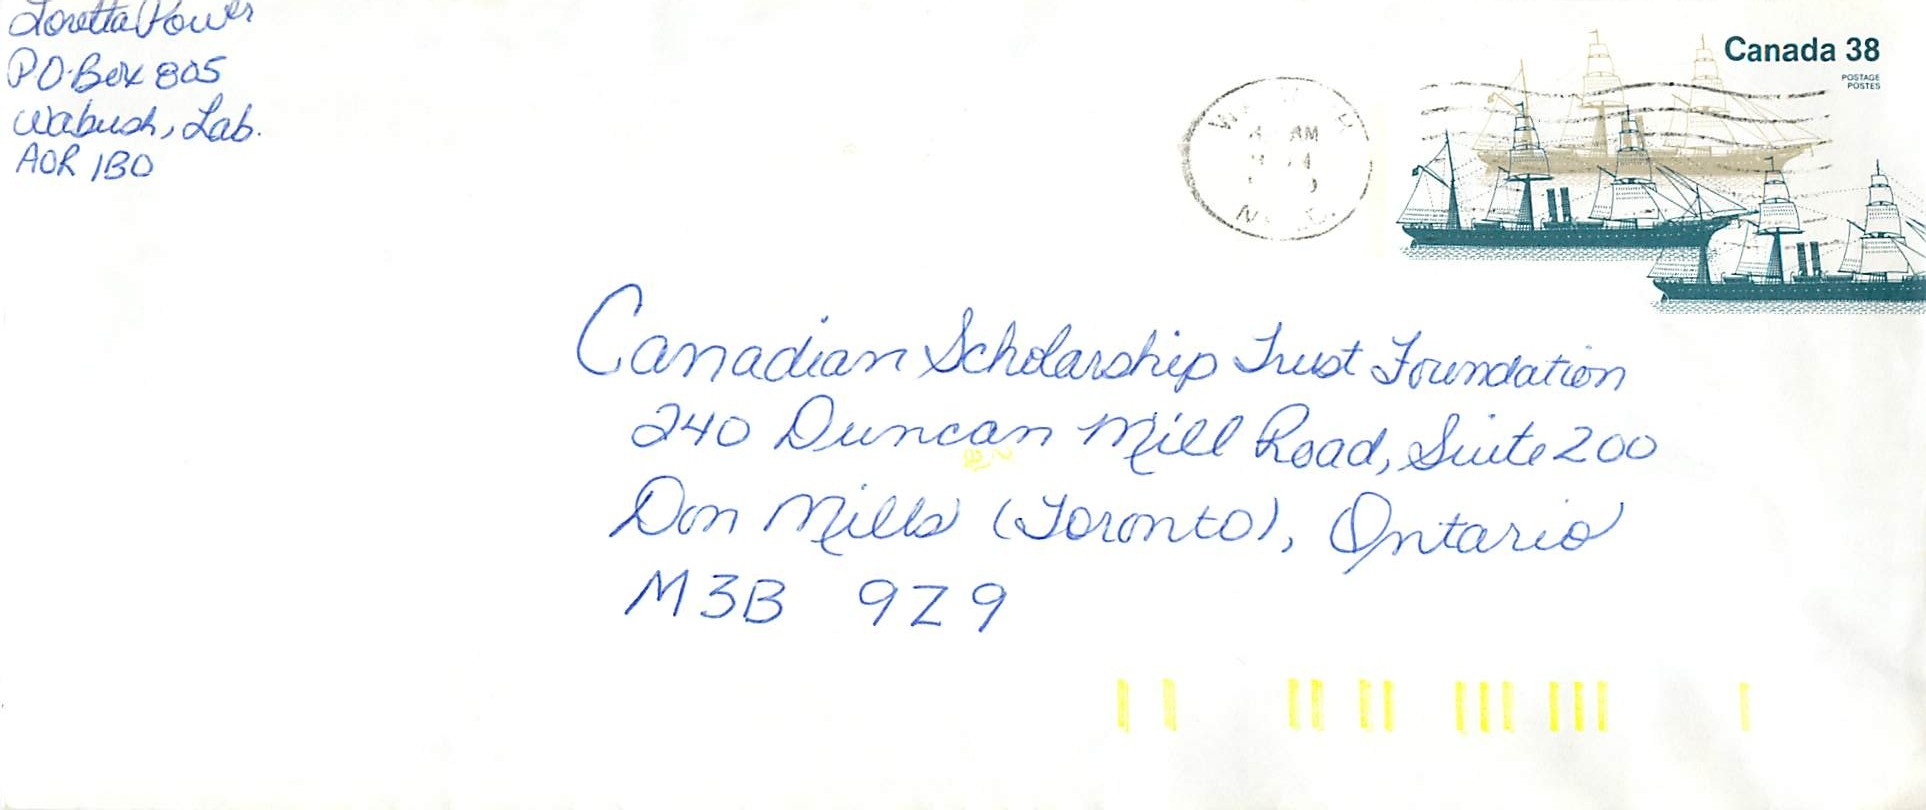 Loretta Power
PO·Box 805
Wabush, Lab.
AOR 1BO
Canada 38
POSTAGE
POSTES
AM
Canadian Scholarship Trust Foundation
240 Duncan Mill Road, Suite 200
Don Mills (Toronto), Ontario
M3B 9Z9